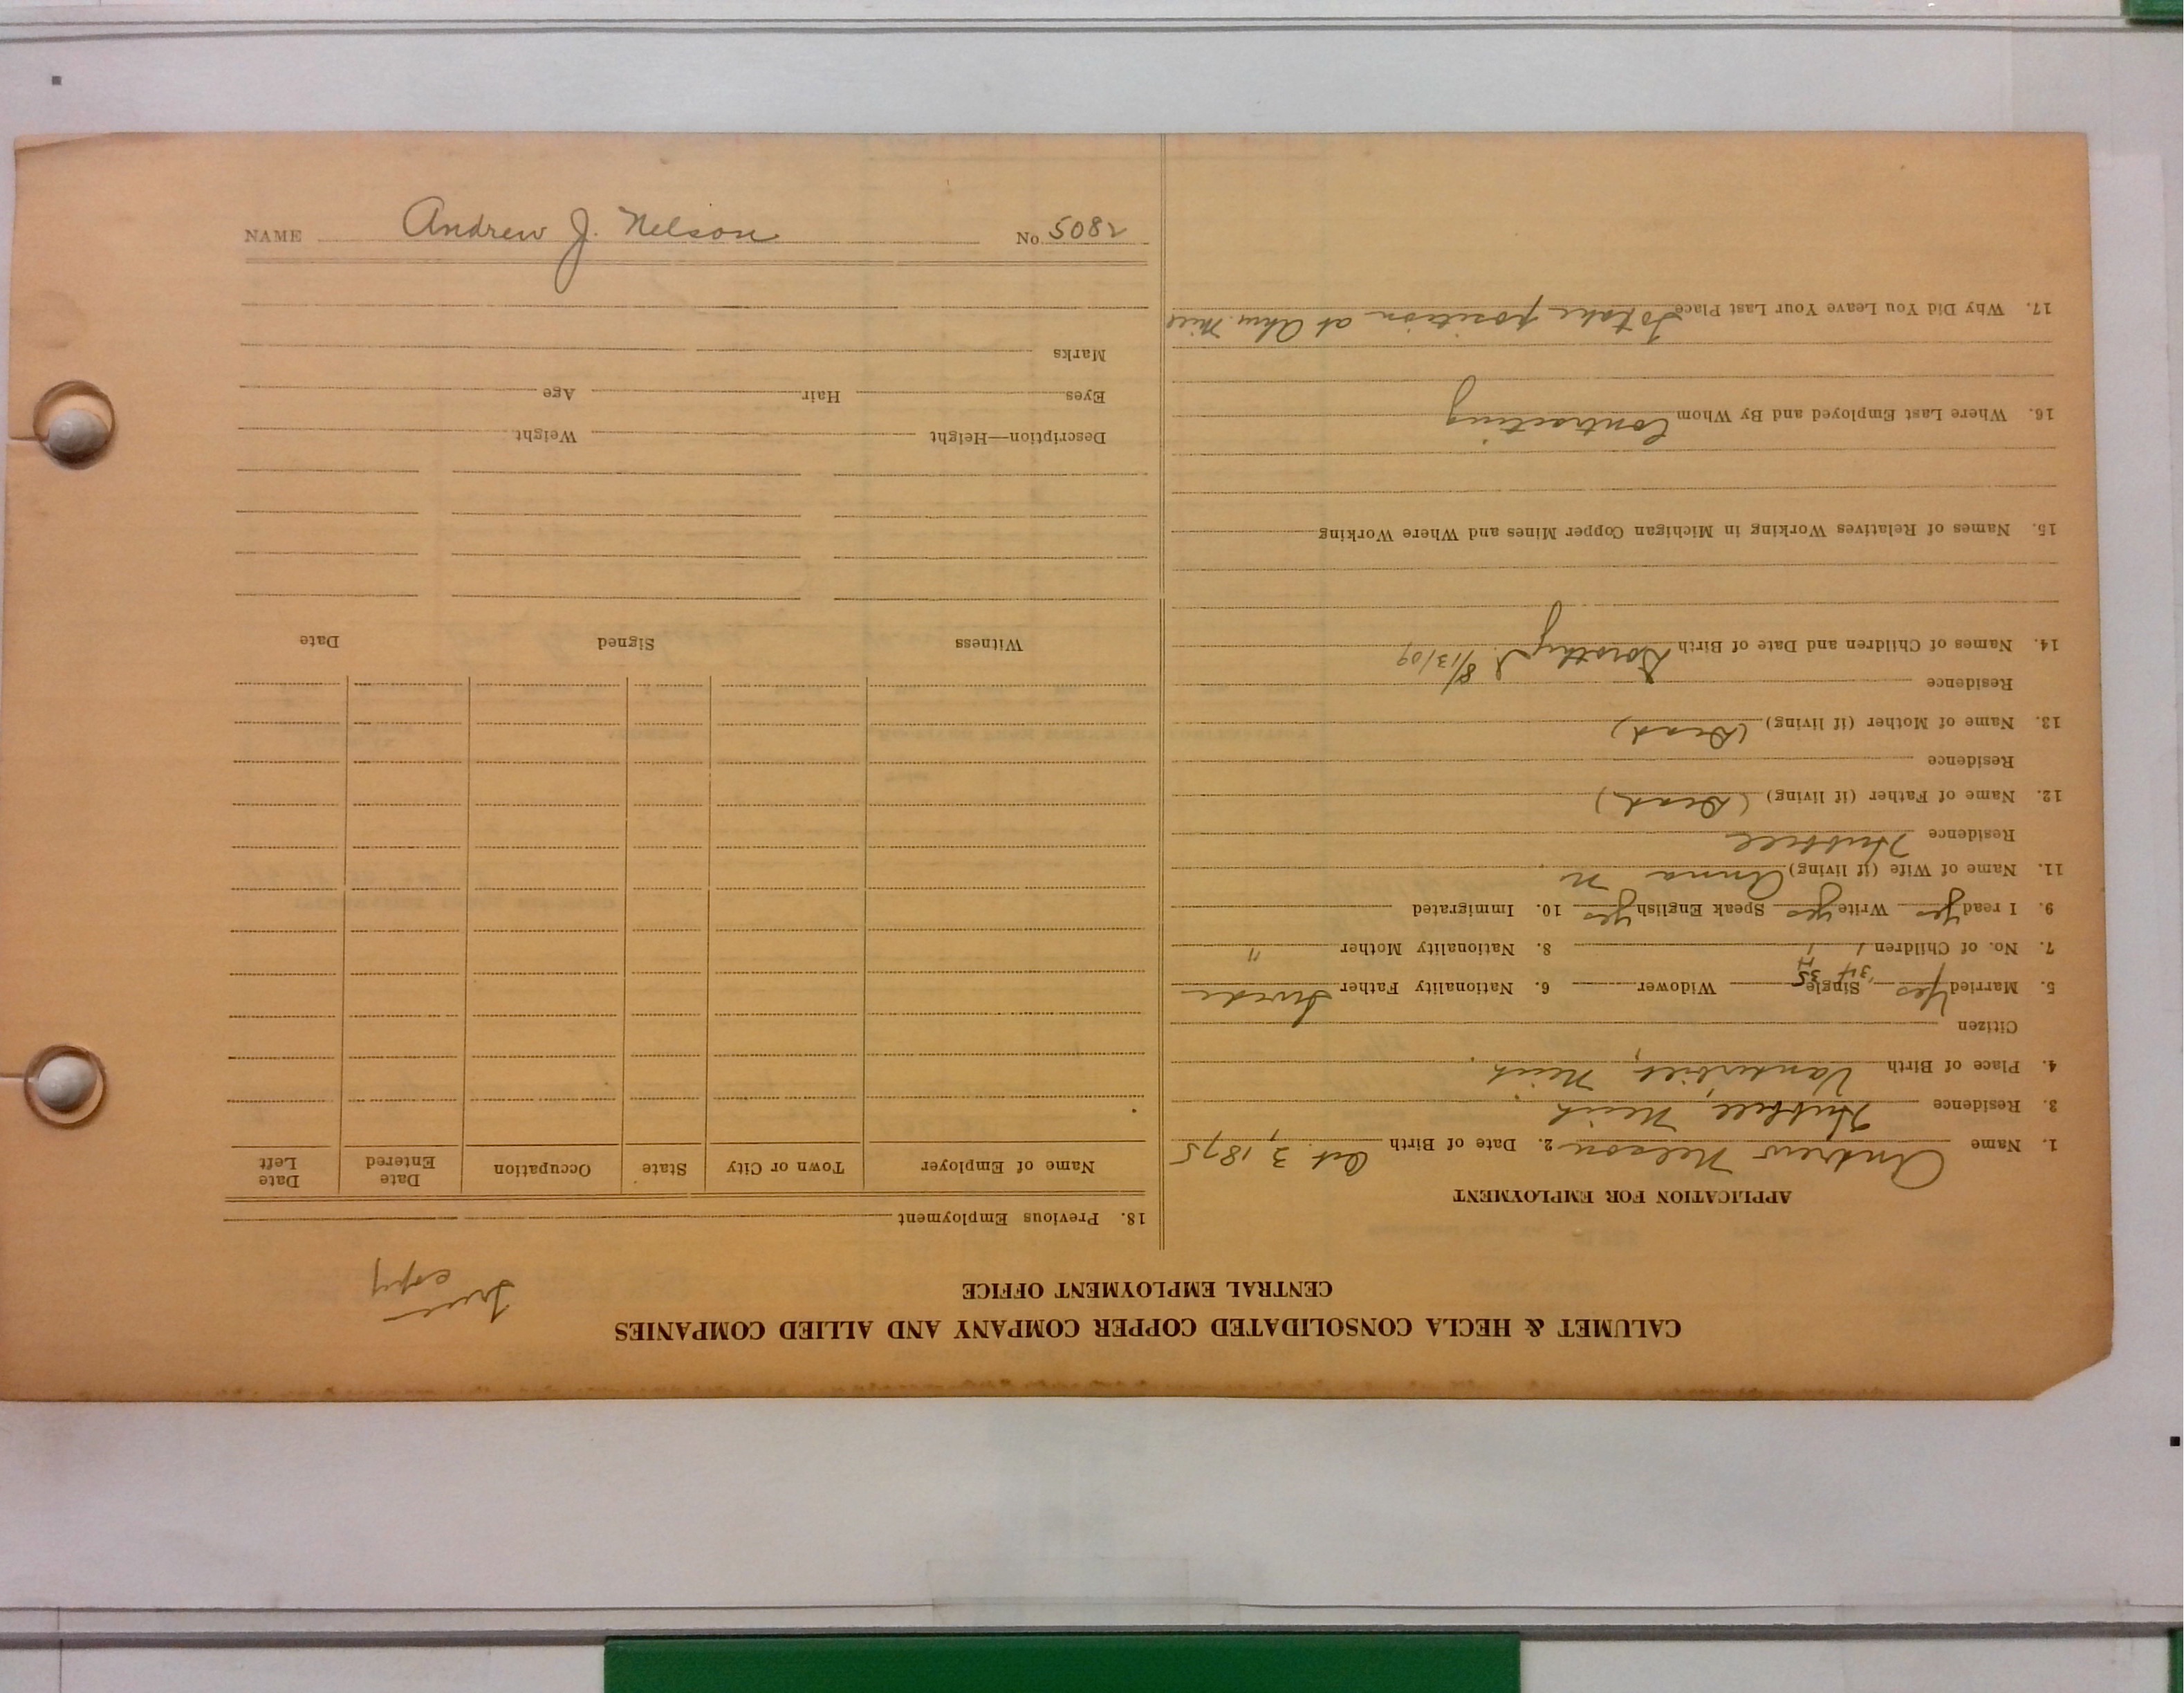 NAME Andrew J. Nelson No. 5082
CALUMET & HECLA CONSOLIDATED COPPER COMPANY AND ALLIED COMPANIES
CENTRAL EMPLOYMENT OFFICE
True copy
APPLICATION FOR EMPLOYMENT
1. Name Andrew Nelson 2. Date of Birth Oct 3, 1875
3. Residence Hubbell, Mich
4. Place of Birth Vanderbilt, Mich
Citizen
5. Married Yes Single Widower 6. Nationality Father Swede
7. No. of Children 1 8. Nationality Mother "
9. I read yes Write yes Speak English yes 10. Immigrated
11. Name of Wife (if living) Anna N
Residence Hubbell
12. Name of Father (if living) (Dead)
Residence
13. Name of Mother (if living) (Dead)
Residence
14. Names of Children and Date of Birth Dorothy 8/13/09
15. Names of Relatives Working in Michigan Copper Mines and Where Working
16. Where Last Employed and By Whom Contracting
17. Why Did You Leave Your Last Place To take position at Ahm. Mill
18. Previous Employment
Name of Employer Town or City State Occupation Date Entered Date Left
Witness Signed Date
Description—Height Weight
Eyes Hair Age
Marks